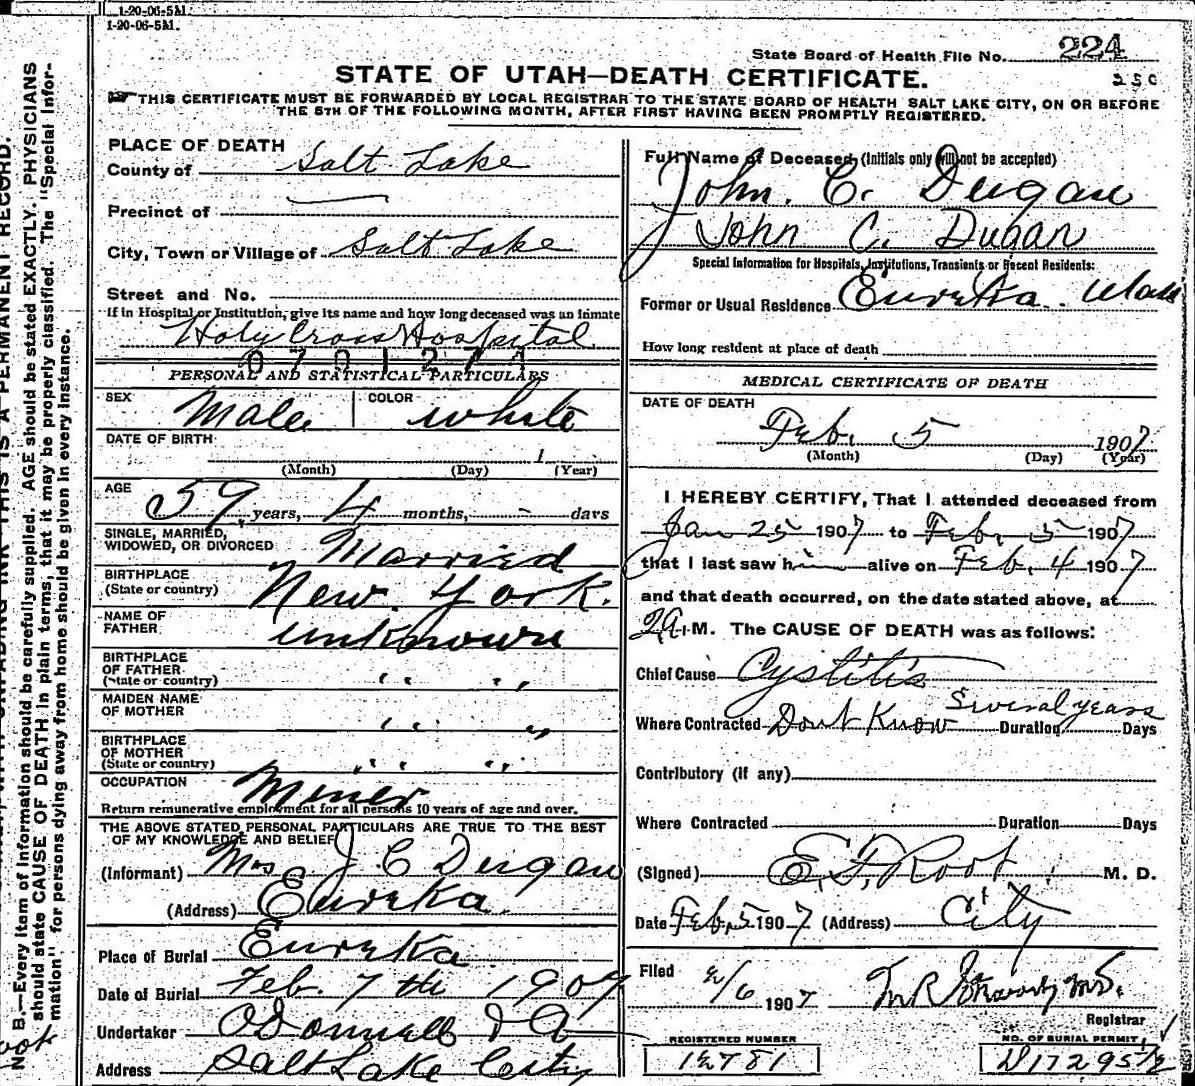 1-20-06-5M.
1-20-06-5M.
State Board of Health File No. 224
STATE OF UTAH—DEATH CERTIFICATE.
250
THIS CERTIFICATE MUST BE FORWARDED BY LOCAL REGISTRAR TO THE STATE BOARD OF HEALTH SALT LAKE CITY, ON OR BEFORE
THE 5TH OF THE FOLLOWING MONTH, AFTER FIRST HAVING BEEN PROMPTLY REGISTERED.
PLACE OF DEATH
County of Salt Lake
Precinct of
City, Town or Village of Salt Lake
Street and No.
If in Hospital or Institution, give its name and how long deceased was an inmate
Holy Cross Hospital
PERSONAL AND STATISTICAL PARTICULARS
SEX Male COLOR white
DATE OF BIRTH
1
(Month) (Day) (Year)
AGE 59 years, 4 months, - days
SINGLE, MARRIED,
WIDOWED, OR DIVORCED Married
BIRTHPLACE
(State or country) New York.
NAME OF
FATHER unknown
BIRTHPLACE
OF FATHER
(State or country) " "
MAIDEN NAME
OF MOTHER " "
BIRTHPLACE
OF MOTHER
(State or country) " "
OCCUPATION Miner
Return remunerative employment for all persons 10 years of age and over.
THE ABOVE STATED PERSONAL PARTICULARS ARE TRUE TO THE BEST
OF MY KNOWLEDGE AND BELIEF
(Informant) Mrs J C Dugan
(Address) Eureka.
Place of Burial Eureka
Date of Burial Feb. 7th 1907
Undertaker O'Donnell
Address Salt Lake City
Full Name of Deceased (Initials only will not be accepted)
John. C. Dugan
John C. Dugan
Special Information for Hospitals, Institutions, Transients or Recent Residents:
Former or Usual Residence Eureka. Utah
How long resident at place of death
MEDICAL CERTIFICATE OF DEATH
DATE OF DEATH
Feb. 5 1907
(Month) (Day) (Year)
I HEREBY CERTIFY, That I attended deceased from
Jan 25 1907 to Feb. 5 1907
that I last saw him alive on Feb. 4 1907
and that death occurred, on the date stated above, at
2 A. M. The CAUSE OF DEATH was as follows:
Chief Cause Cystitis
Several years
Where Contracted Dont Know Duration Days
Contributory (if any)
Where Contracted Duration Days
(Signed) E. F. Root M. D.
Date Feb. 5 1907 (Address) City
Filed 2/6 1907
Registrar
REGISTERED NUMBER
12781
NO. OF BURIAL PERMIT
N. B.—Every item of information should be carefully supplied. AGE should be stated EXACTLY. PHYSICIANS
should state CAUSE OF DEATH in plain terms, that it may be properly classified. The "Special Infor-
mation" for persons dying away from home should be given in every instance.